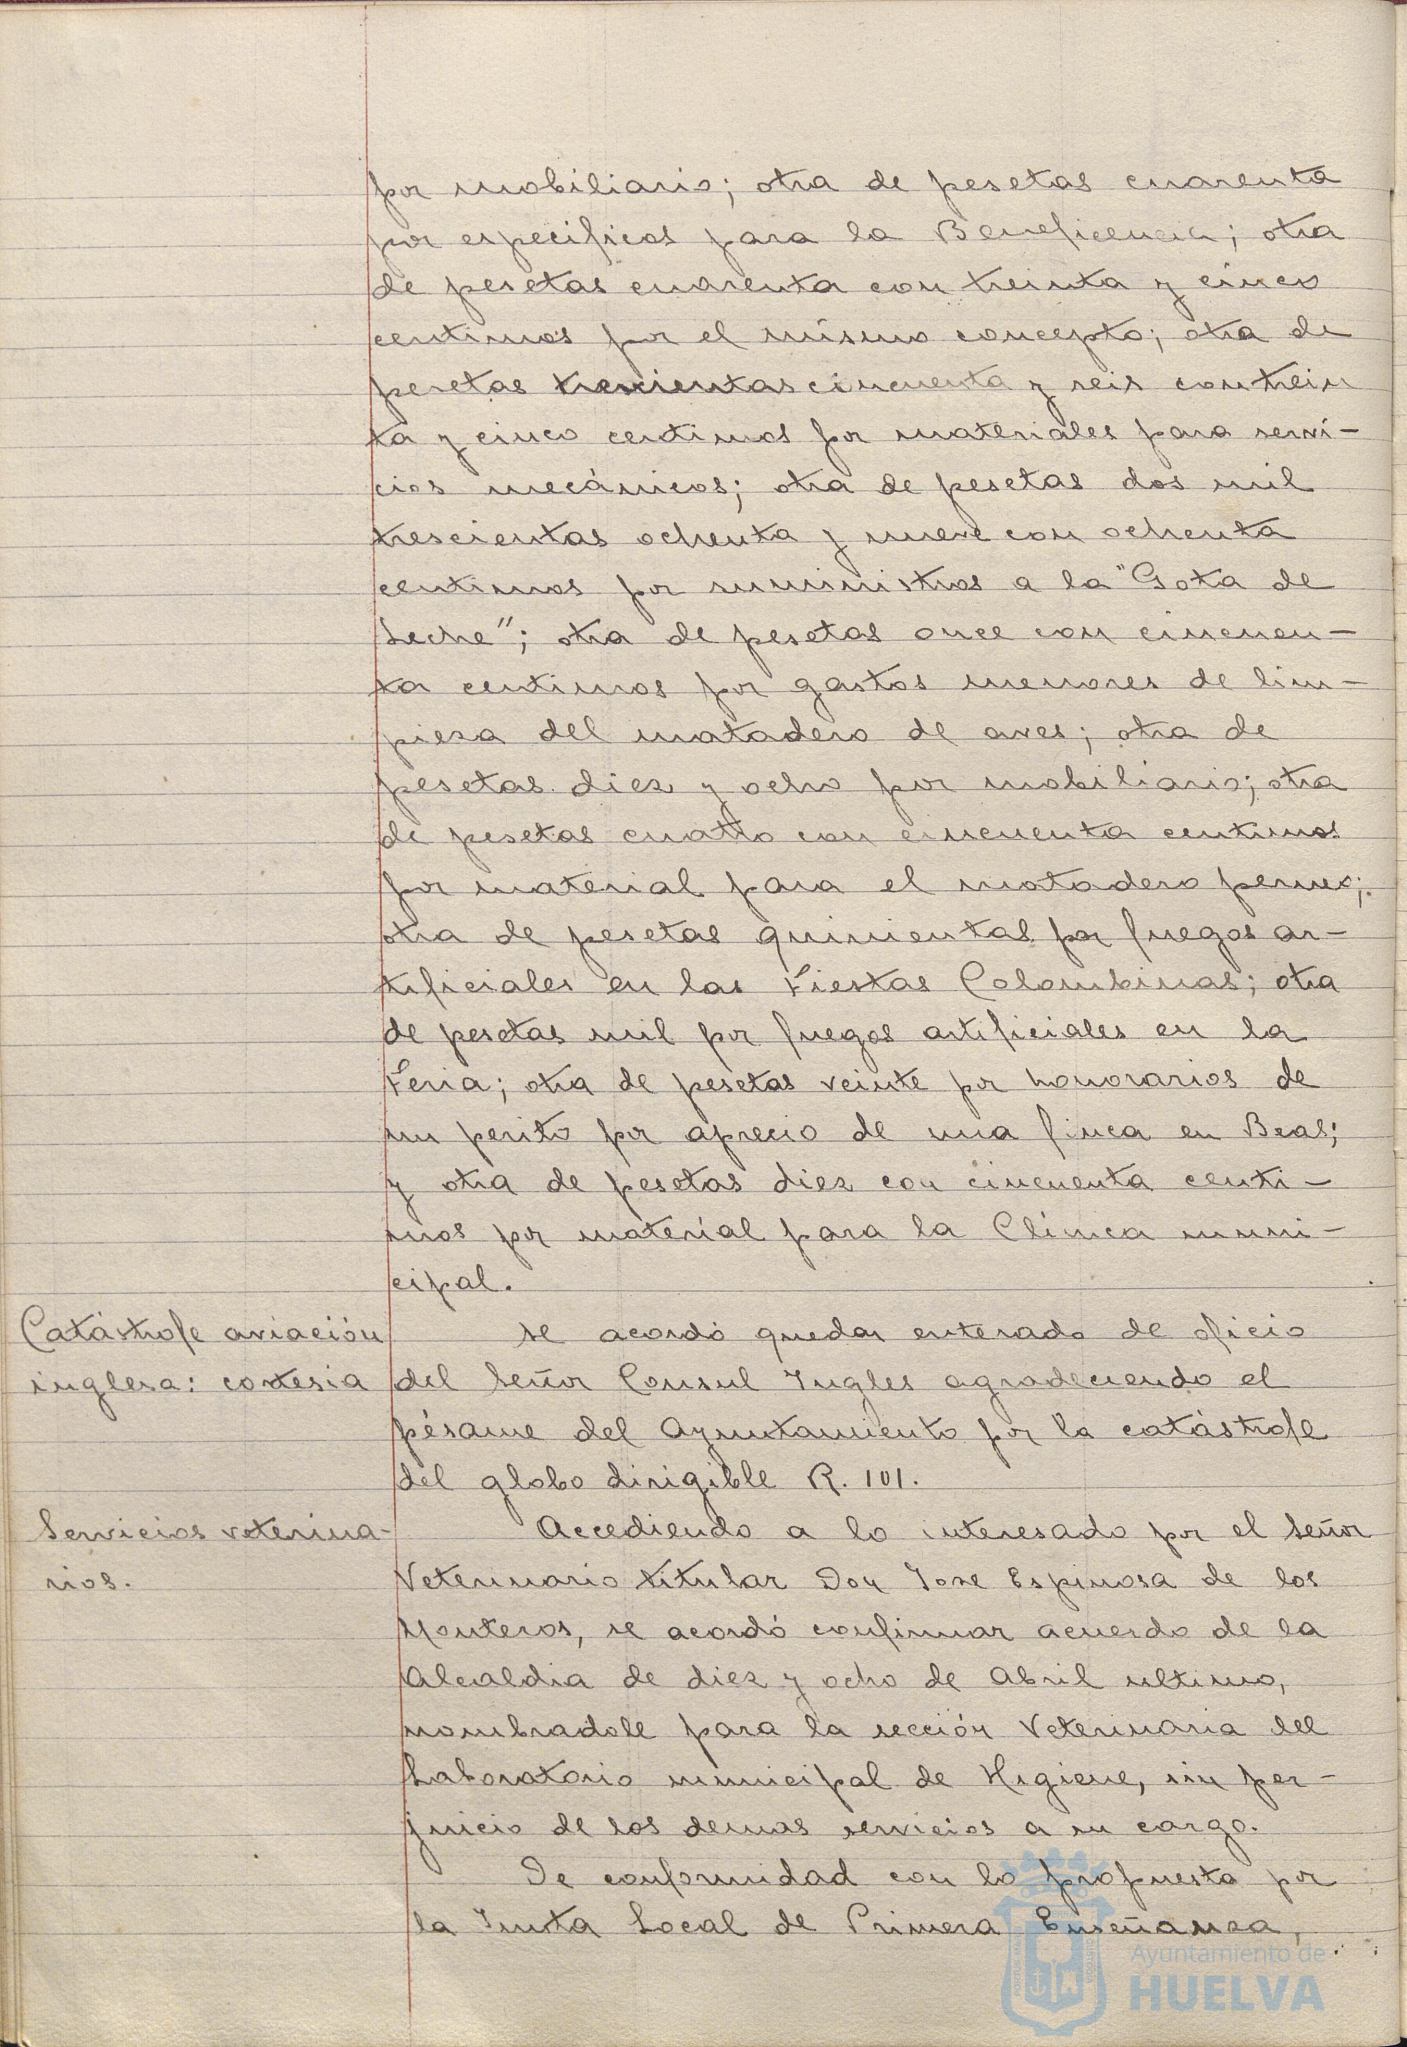 por mobiliario; otra de pesetas cuarenta
por especificos para la Beneficencia; otra
de pesetas cuarenta con treinta y cinco
centimos por el mismo concepto; otra de
pesetas trescientas cincuenta y seis con trein
ta y cinco centimos por materiales para servi-
cios mecánicos; otra de pesetas dos mil
trescientas ochenta y nueve con ochenta
centimos por suministros a la "Gota de
Leche"; otra de pesetas once con cincuen-
ta centimos por gastos menores de lim-
pieza del matadero de aves; otra de
pesetas diez y ocho por mobiliario; otra
de pesetas cuatro con cincuenta centimos
por material para el matadero perneo;
otra de pesetas quinientas por fuegos ar-
tificiales en las Fiestas Colombinas; otra
de pesetas mil por fuegos artificiales en la
Feria; otra de pesetas veinte por honorarios de
un perito por aprecio de una finca en Beas;
y otra de pesetas diez con cincuenta centi-
mos por material para la Clínica muni-
cipal.
Catástrofe aviación
inglesa: cortesia
Se acordó quedar enterado de oficio
del Señor Consul Ingles agradeciendo el
pésame del Ayuntamiento por la catástrofe
del globo dirigible R. 101.
Servicios veterina-
rios.
Accediendo a lo interesado por el Señor
Veterinario titular Don Jose Espinosa de los
Monteros, se acordó confirmar acuerdo de la
Alcaldia de diez y ocho de Abril ultimo,
nombradole para la sección Veterinaria del
Laboratorio municipal de Higiene, sin per-
juicio de los demas servicios a su cargo.
De conformidad con lo propuesto por
la Junta Local de Primera Enseñanza,
Ayuntamiento de
HUELVA